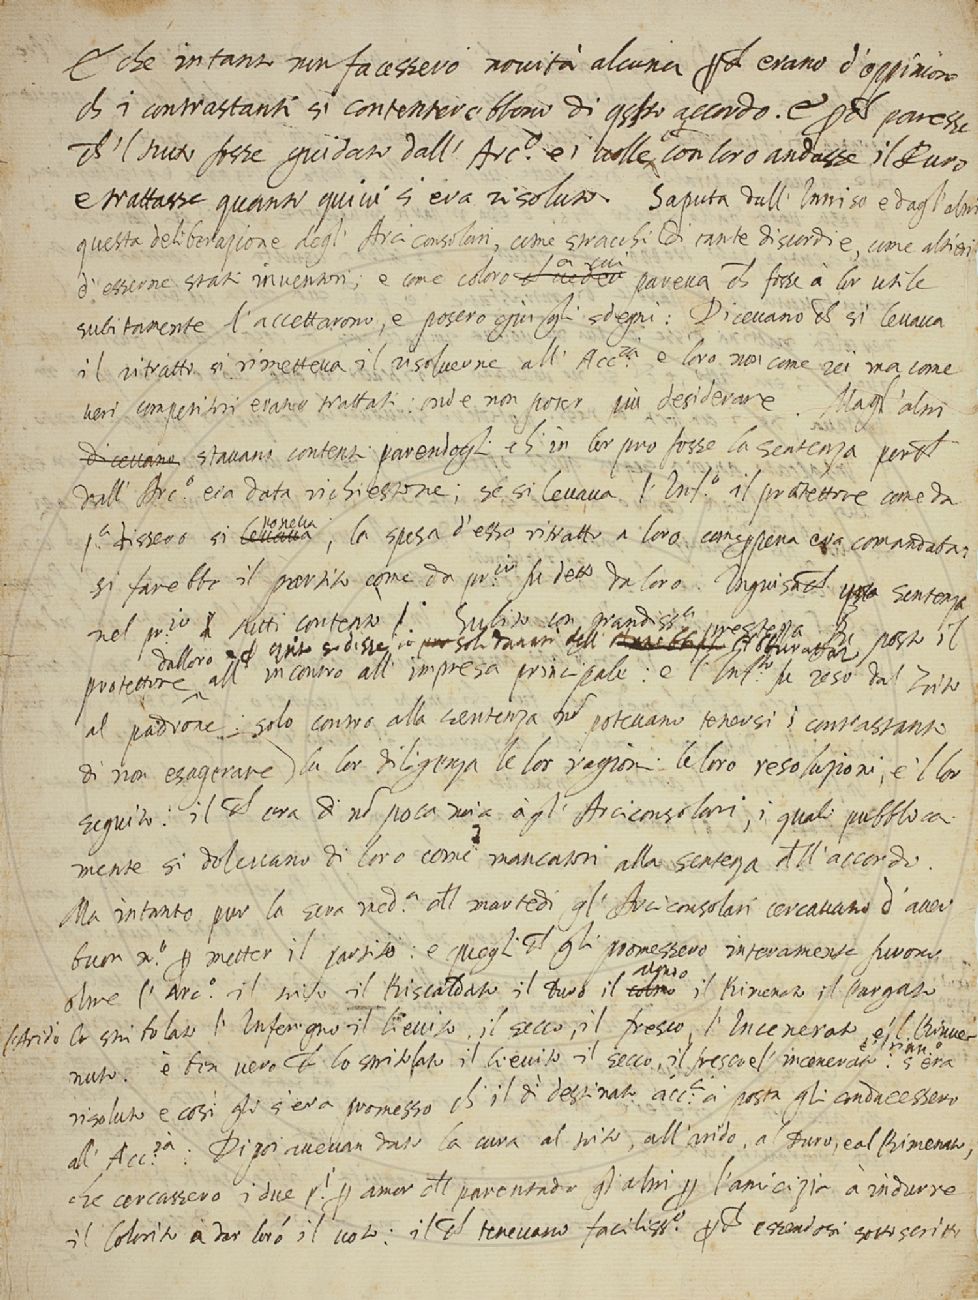 E che intanto non facessero novità alcuna p[er]ch[é] erano d'oppinion
ch i contrastanti si contenterebbono di q[ue]sto accordo. E p[er]ch[é] paresse
ch'l tutto fosse guidato dall' Arc.º e i volle con loro andasse il Duro
e trattasse quanto quivi si era risoluto. Saputa dall' Inniso e dagl'altri
questa deliberazione degl' Arciconsolari, come stracchi di tante discordie, come alti
d'esserne stati inventori; e come coloro a cui pareva ch fosse à lor utile
subitamente l'accettarono, e posero giù gli sdegni: Dicevano ch si levava
il ritratto si rimetteva il risolverne all' Acc.za e loro non come rei ma come
veri competitori erano trattati: onde non poter più desiderare. Magl'altri
dicevano stavano contenti parendogli ch in lor pro fosse la sentenza
dall' Arc.º era data richiestone; se si levava l'Inf.º il protettore come da
p.ª dissero si levava poneva, la spesa d'esso ritratto a loro come pena era comandata:
si farebbe il partito come da pr.io fu detto da loro. sentenza
nel pr.io tutti contenti. Subito con grandiss.ª prestezza fu posto il
dalloro
protettore all' incontro all' impresa principale: e l'Inf.to fu reso dal Trito
al padrone: solo contro alla sentenza nō potevano tenersi i contrastanti
di non esagerare la lor diligenza le lor ragioni: le loro resoluzioni, e'l lor
seguito: il ch era di nō poca noia à gl' Arciconsolari, i quali pubblica
mente si dolevano di loro come mancatori alla sentenza dell'accordo.
Ma intanto pur la sera med.ª del martedì gl' Arciconsolari cercavano d'aver
buon n.º p[er] metter il partito: e quegli ch gli promessero interamente furono
oltre l'Arc.º il trito il Riscaldato il Duro il colmo il Rimenato il Pargato
l'Arido lo stritolato l'Inferigno il lievito, il secco, il fresco, l'Incenerato, e'l Rinve
nuto. è ben vero ch lo stritolato il lievito il secco, il fresco e l'incenerato s'era
risoluto e così gli s'era promesso ch il dì destinato à posta gli conducessero
all' Acc.za: Dipoi avevan dato la cura al trito, all'arido, al Duro, e al Rimenato,
che cercassero i due p.i p[er] amor del parentado gl'altri p[er] l'amicizia à indurre
il Colorito à dar loro il voto: il ch tenevano faciliss.º p[er]ch[é] essendosi sottoscritto